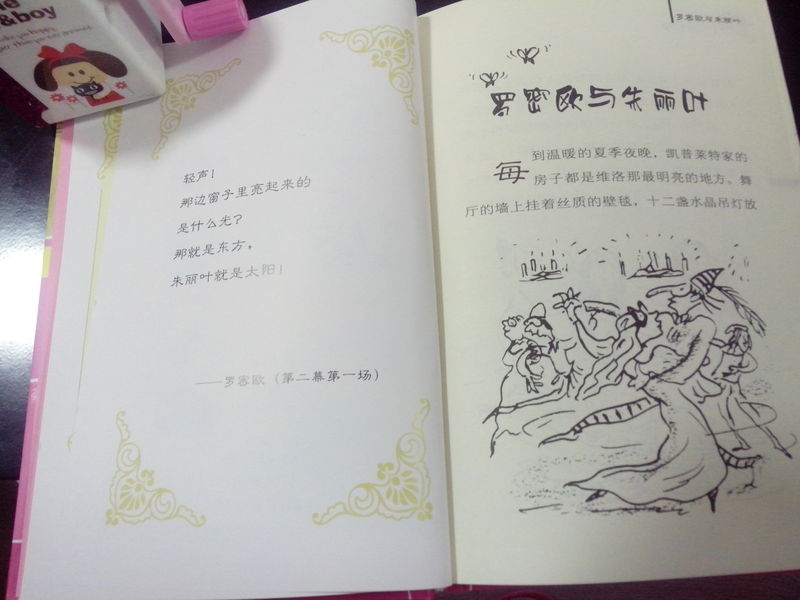 &boy
轻声!
那边窗子里亮起来的
是什么光?
那就是东方,
朱丽叶就是太阳!
——罗密欧(第二幕第一场)
罗密欧与朱丽叶
罗密欧与朱丽叶
每到温暖的夏季夜晚,凯普莱特家的
房子都是维洛那最明亮的地方。舞
厅的墙上挂着丝质的壁毯,十二盏水晶吊灯放